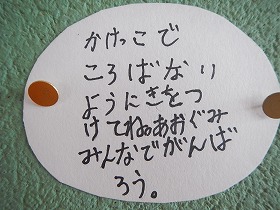 かけっこで
ころばなり
ようにきをつ
けてねあおぐみ
みんなでがんば
ろう。